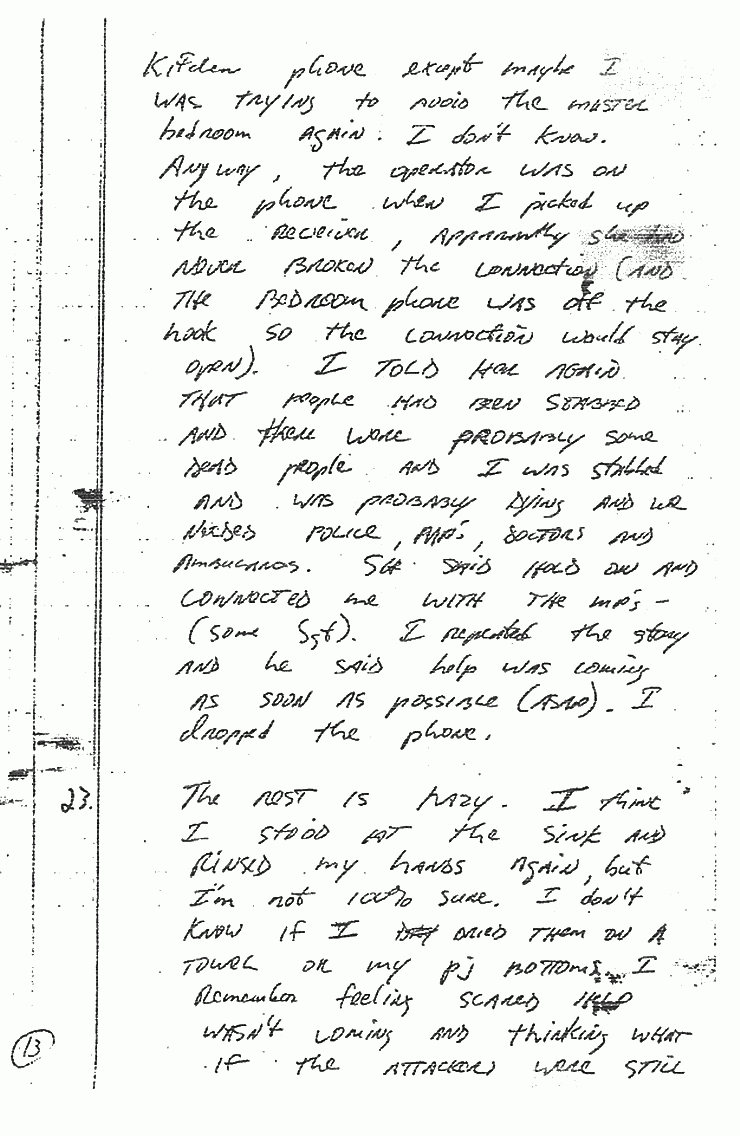 Kitchen phone except maybe I
WAS TRYING to AVOID the MASTER
bedroom AGAIN. I don't KNOW.
ANYWAY, the OPERATOR WAS ON
the phone when I picked up
the RECEIVER, APPARENTLY she HAD
NEVER BROKEN the CONNECTION (AND
THE BEDROOM phone WAS off the
hook SO the CONNECTION would stay
OPEN). I TOLD HER AGAIN
THAT people HAD BEEN STABBED
AND there WERE PROBABLY some
DEAD people AND I WAS stabbed
AND WAS PROBABLY DYING AND WE
NEEDED POLICE, MP's, DOCTORS AND
AMBULANCES. SHE SAID HOLD ON AND
CONNECTED me WITH THE MP's -
(some Sgt). I repeated the story
AND he SAID help WAS coming
AS SOON AS possible (ASAP). I
dropped the phone.
23. The REST IS hazy. I think
I STOOD AT the SINK AND
RINSED my hands AGAIN, but
I'm not 100% sure. I don't
KNOW if I DRIED THEM ON A
TOWEL OR my pj BOTTOMS. I
Remember feeling SCARED HELP
WASN'T COMING AND thinking WHAT
IF the ATTACKERS WERE STILL
13